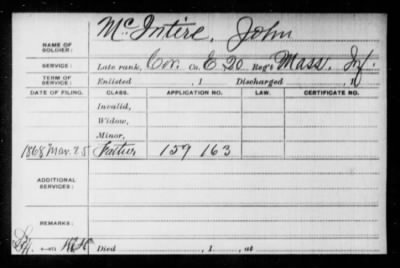 NAME OF SOLDIER: McIntire, John
SERVICE: Late rank, Cor. Co. E 20 Reg't Mass. Inf.
TERM OF SERVICE: Enlisted , 1 Discharged , 1
DATE OF FILING. CLASS. APPLICATION NO. LAW. CERTIFICATE NO.
Invalid,
Widow,
Minor,
1868 Mar. 25 Father, 159 163
ADDITIONAL SERVICES:
REMARKS:
Died , 1 , at